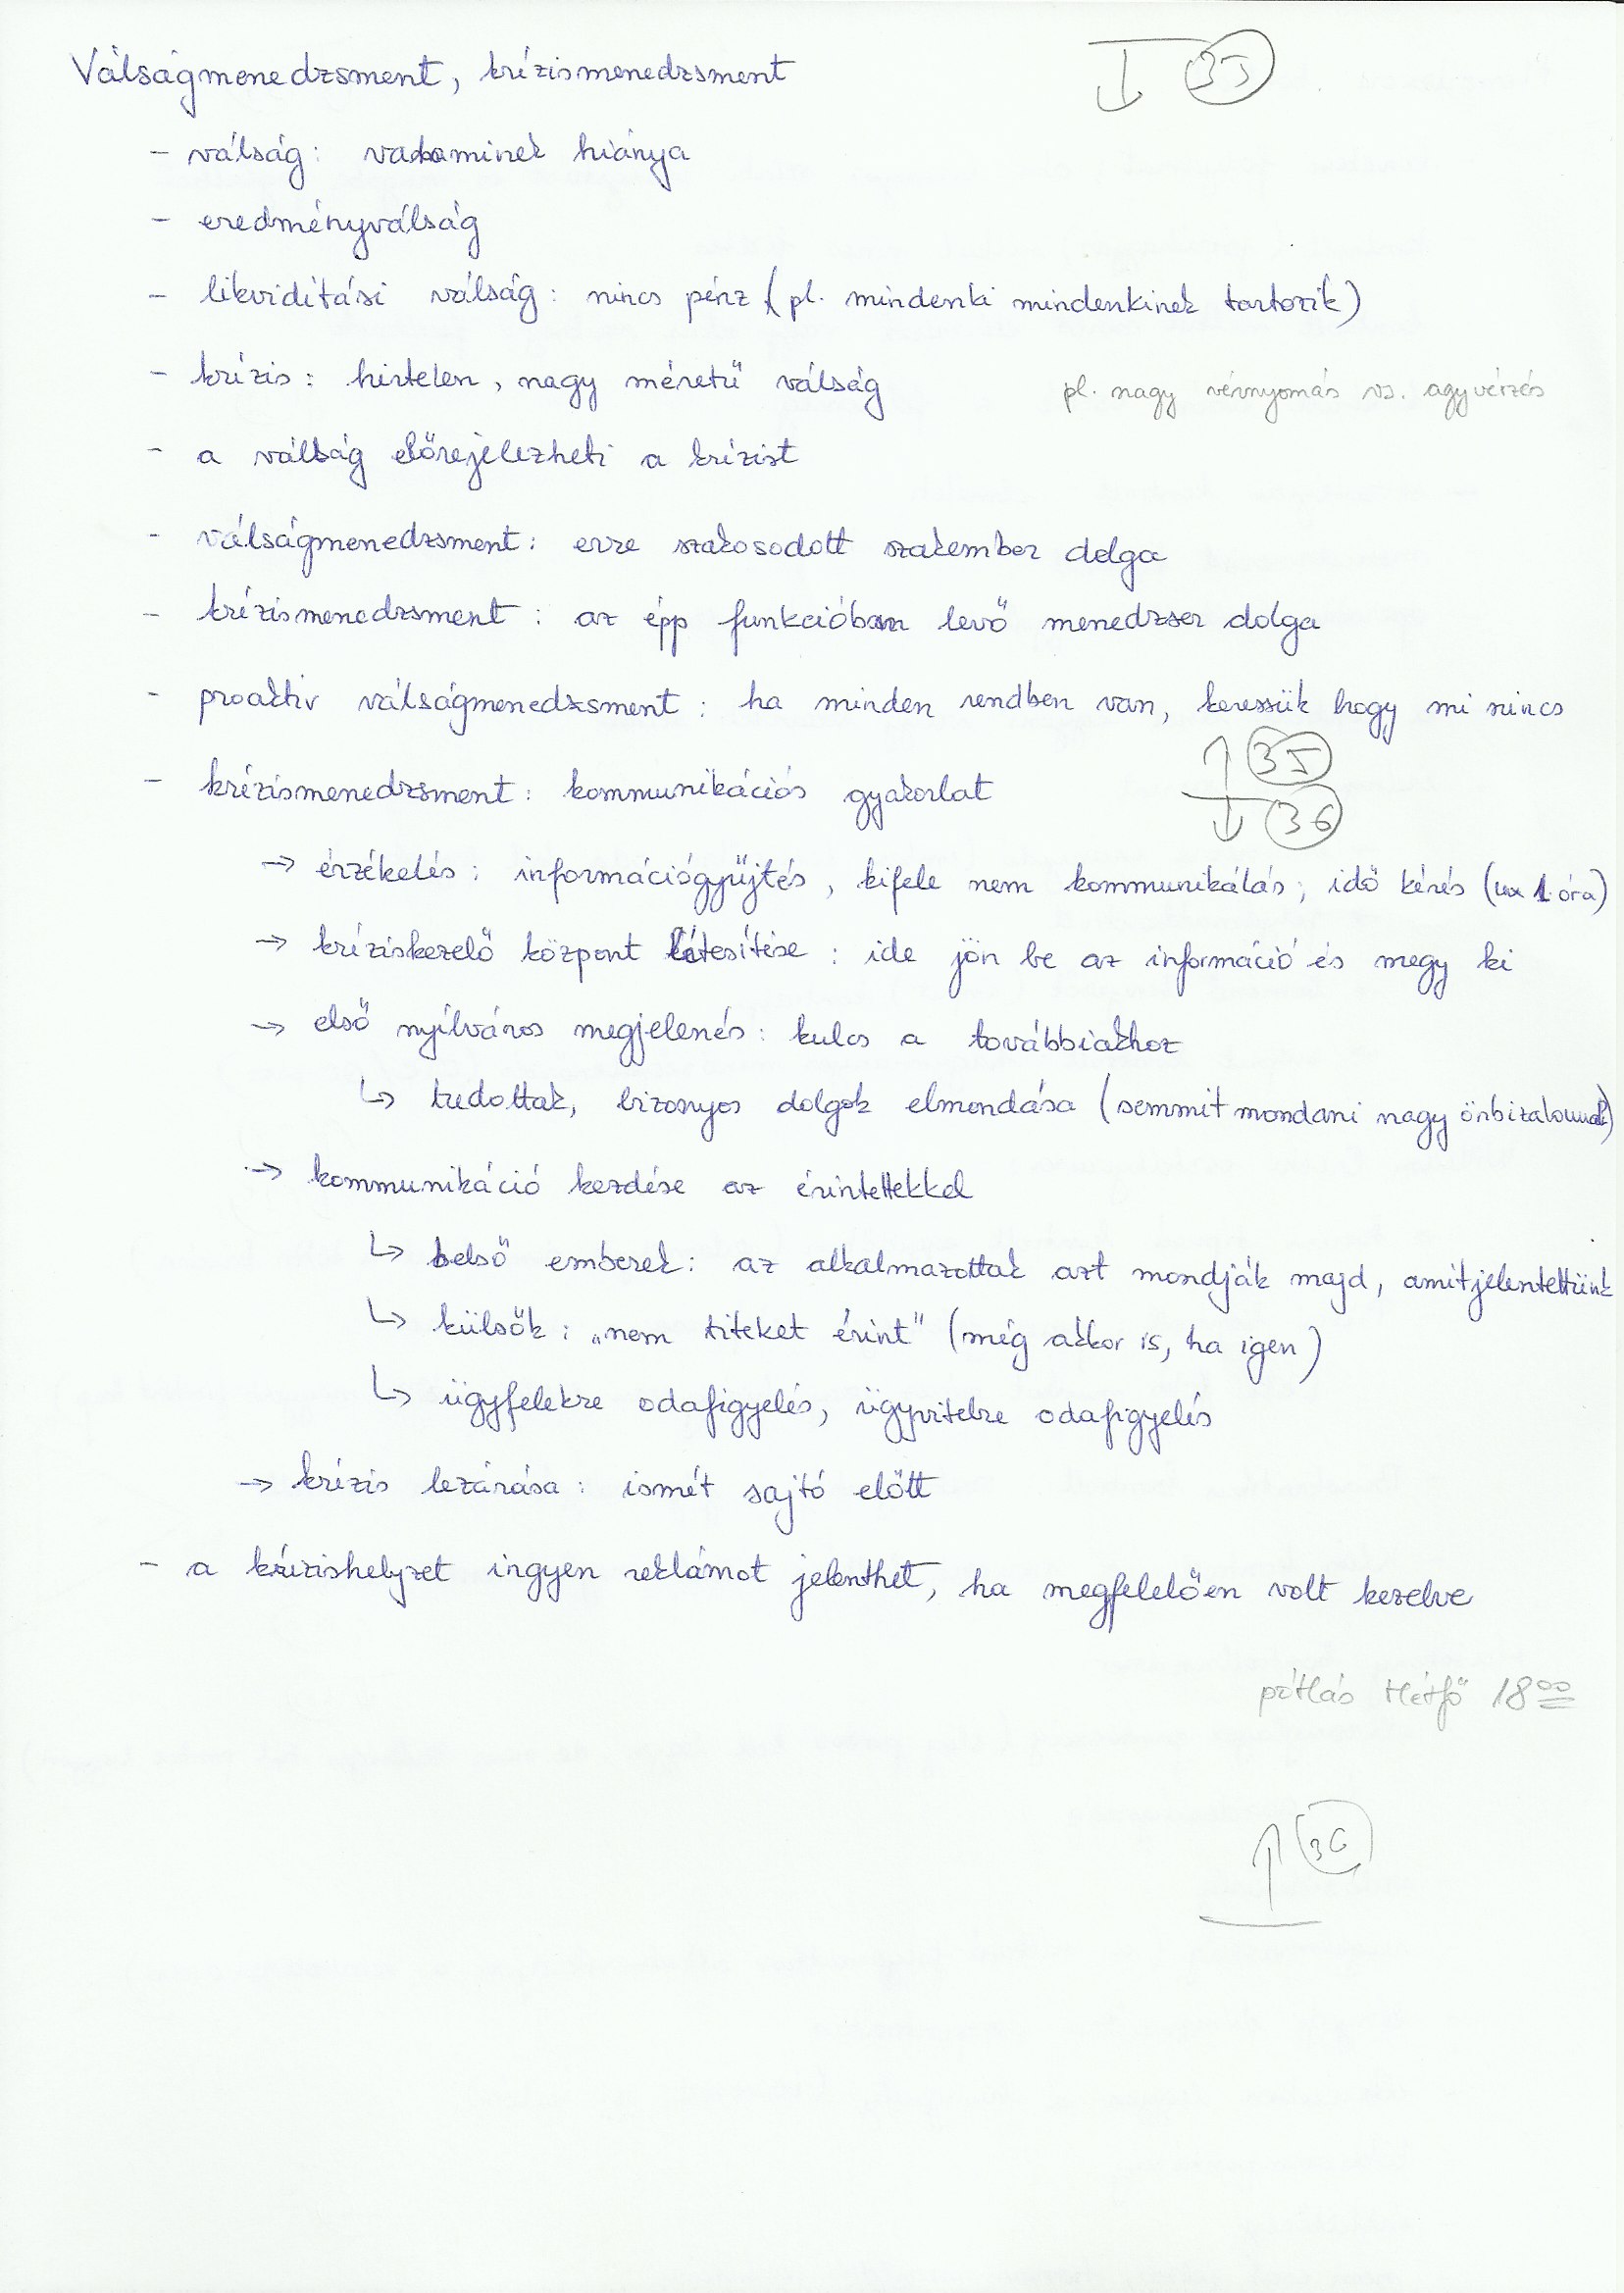 Válságmenedzsment, krízismenedzsment ↓ 35
- válság: valaminek hiánya
- eredményválság
- likviditási válság: nincs pénz (pl. mindenki mindenkinek tartozik)
- krízis: hirtelen, nagy méretű válság pl. nagy vérnyomás vs. agyvérzés
- a válság előrejelezheti a krízist
- válságmenedzsment: erre szakosodott szakember dolga
- krízismenedzsment: az épp funkcióban levő menedzser dolga
- proaktív válságmenedzsment: ha minden rendben van, keressük hogy mi nincs
↑ 35
- krízismenedzsment: kommunikációs gyakorlat
↓ 36
→ érzékelés: információgyűjtés, kifele nem kommunikálás, idő kérés (max 1 óra)
→ kríziskezelő központ létesítése: ide jön be az információ és megy ki
→ első nyilváros megjelenés: kulcs a továbbiakhoz
↳ tudottak, bizonyos dolgok elmondása (semmit mondani nagy önbizalommal)
→ kommunikáció kezdése az érintettekkel
↳ belső emberek: az alkalmazottak azt mondják majd, amit jelentettünk
↳ külsők: „nem titeket érint" (még akkor is, ha igen)
↳ ügyfelekre odafigyelés, ügyvitelre odafigyelés
→ krízis lezárása: ismét sajtó előtt
- a krízishelyzet ingyen reklámot jelenthet, ha megfelelően volt kezelve
pótlás Hétfő 18 00
↑ 36